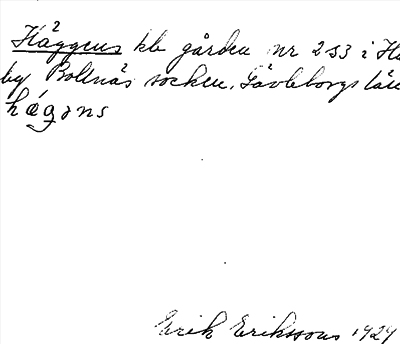 Häggens kb gården nr 2 o 3 i Hä
by Bollnäs socken, Gävleborgs län
hǽgəns
Erik Eriksson 1929